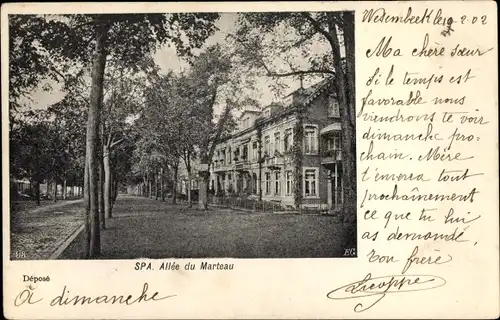 Wesembeek le 19-2-02
Ma chère sœur
Si le temps est
favorable nous
viendrons te voir
dimanche pro-
chain. Mère
t'enverra tout
prochainement
ce que tu lui
as demandé.
Ton frère
SPA. Allée du Marteau
Déposé
à dimanche